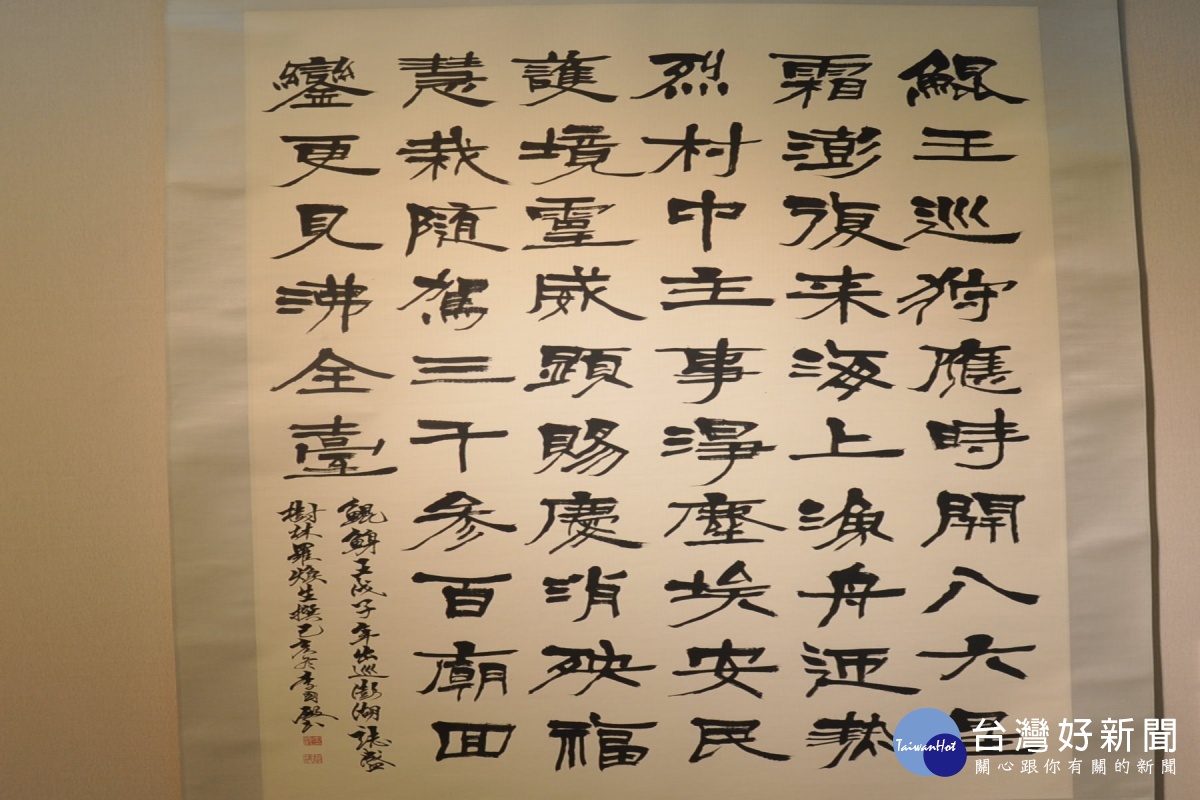 鯤王巡狩應時開八六星
霜澎復来海上漁舟迎熱
烈村中主事淨塵埃安民
護境靈威顕賜慶消殃福
慧栽随駕三千參百廟回
鑾更見沸全臺
鯤鯓王戊子年出巡澎湖誌盛
樹林羅煥生撰己亥冬李國
TaiwanHot
台灣好新聞
關心跟你有關的新聞